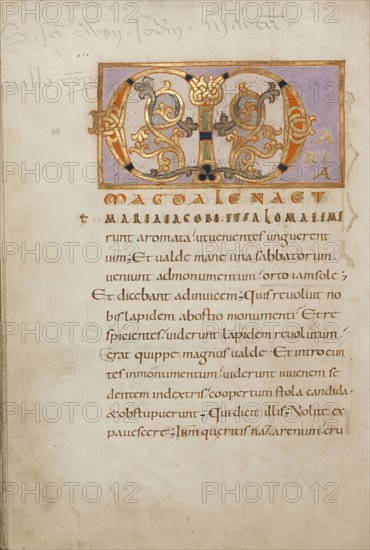 M
ARIA
MAGDALENAET
MARIAIACOBIETSALOMAEEMI
erunt aromata ut uenientes unguerent
ium; Et ualde mane una sabbatorum
ueniunt admonumentum orto iam sole;
Et dicebant adinuicem; Quis reuoluit no
bis lapidem abostio monumenti Etre
spicientes uiderunt lapidem reuolutum
erat quippe magnus ualde Et introeun
tes inmonumentum uiderunt iuuenem se
dentem indextris coopertum stola candida
&obstupuerunt; Qui dicit illis; Nolite ex
pauescere; Ihm queritis nazarenum cru